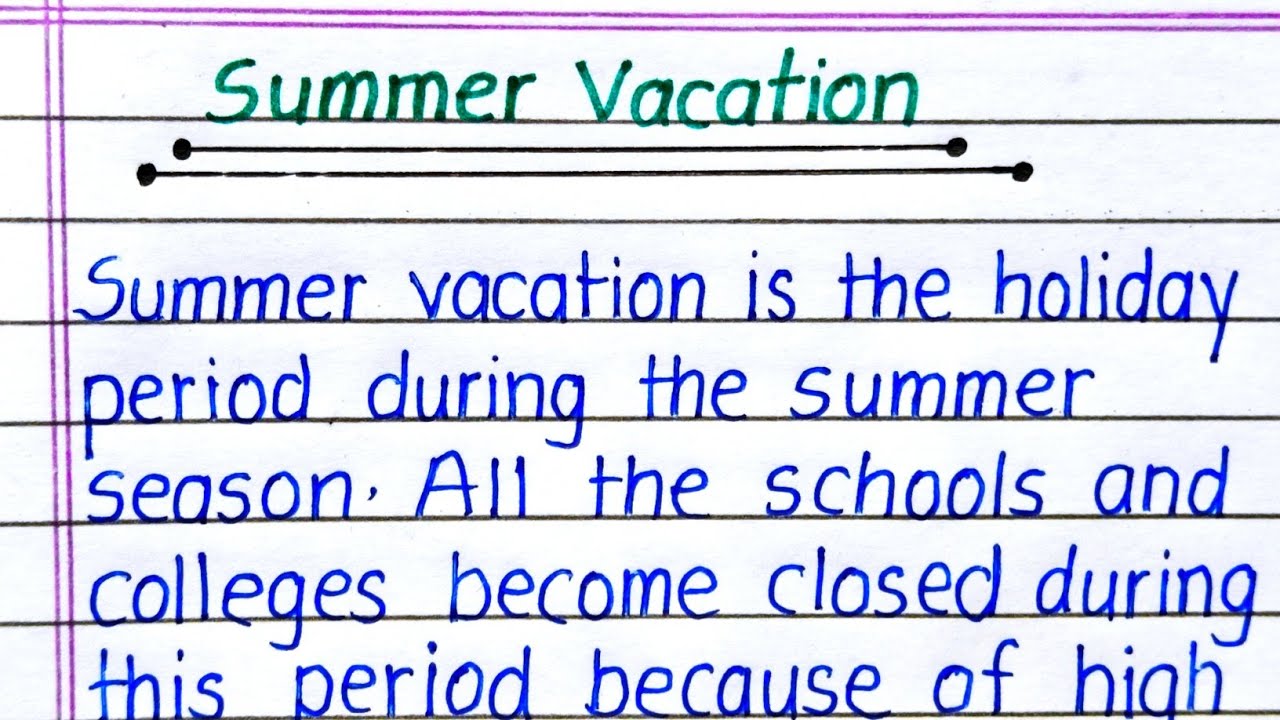 Summer Vacation
Summer vacation is the holiday
period during the summer
season. All the schools and
colleges become closed during
this period because of high